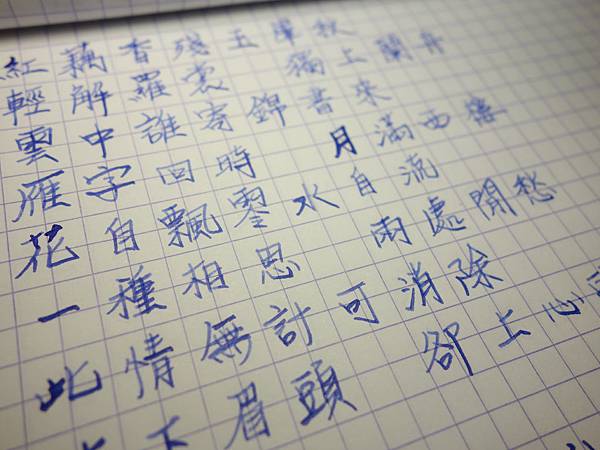 紅藕香殘玉簟秋
輕解羅裳 獨上蘭舟
雲中誰寄錦書來
雁字回時 月滿西樓
花自飄零水自流
一種相思 兩處閒愁
此情無計可消除
下眉頭 卻上心